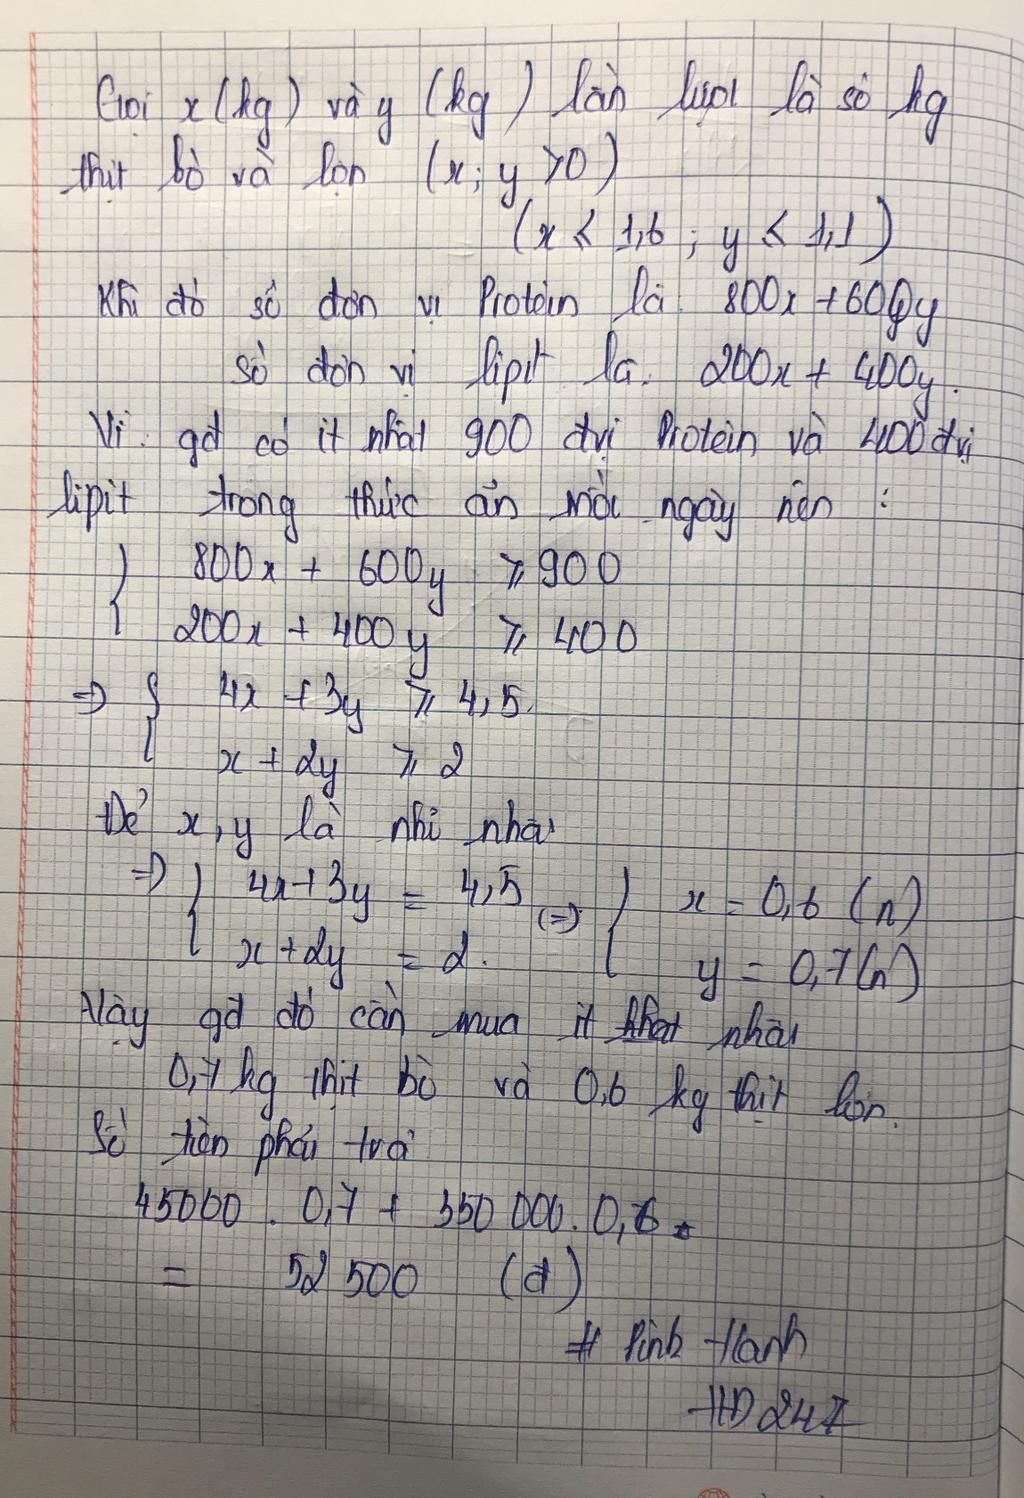 Gọi x (kg) và y (kg) lần lượt là số kg
thịt bò và lợn (x; y > 0)
(x ≤ 1,6 ; y ≤ 1,1)
Khi đó số đơn vị Protein là 800x + 600y
số đơn vị lipit là. 200x + 400y.
Vì gđ có ít nhất 900 đvị Protein và 400 đvị
lipit trong thức ăn mỗi ngày nên :
{ 800x + 600y ≥ 900
200x + 400y ≥ 400
=> { 4x + 3y ≥ 4,5.
x + 2y ≥ 2
Để x, y là nhỏ nhất
=> { 4x + 3y = 4,5 (=> { x = 0,6 (n)
x + 2y = 2. y = 0,7 (n)
Vậy gđ đó cần mua ít nhất
0,7 kg thịt bò và 0,6 kg thịt lợn.
Số tiền phải trả
45000 . 0,7 + 350 000 . 0,6
= 52 500 (đ)
# Linh Hanh
HD 247